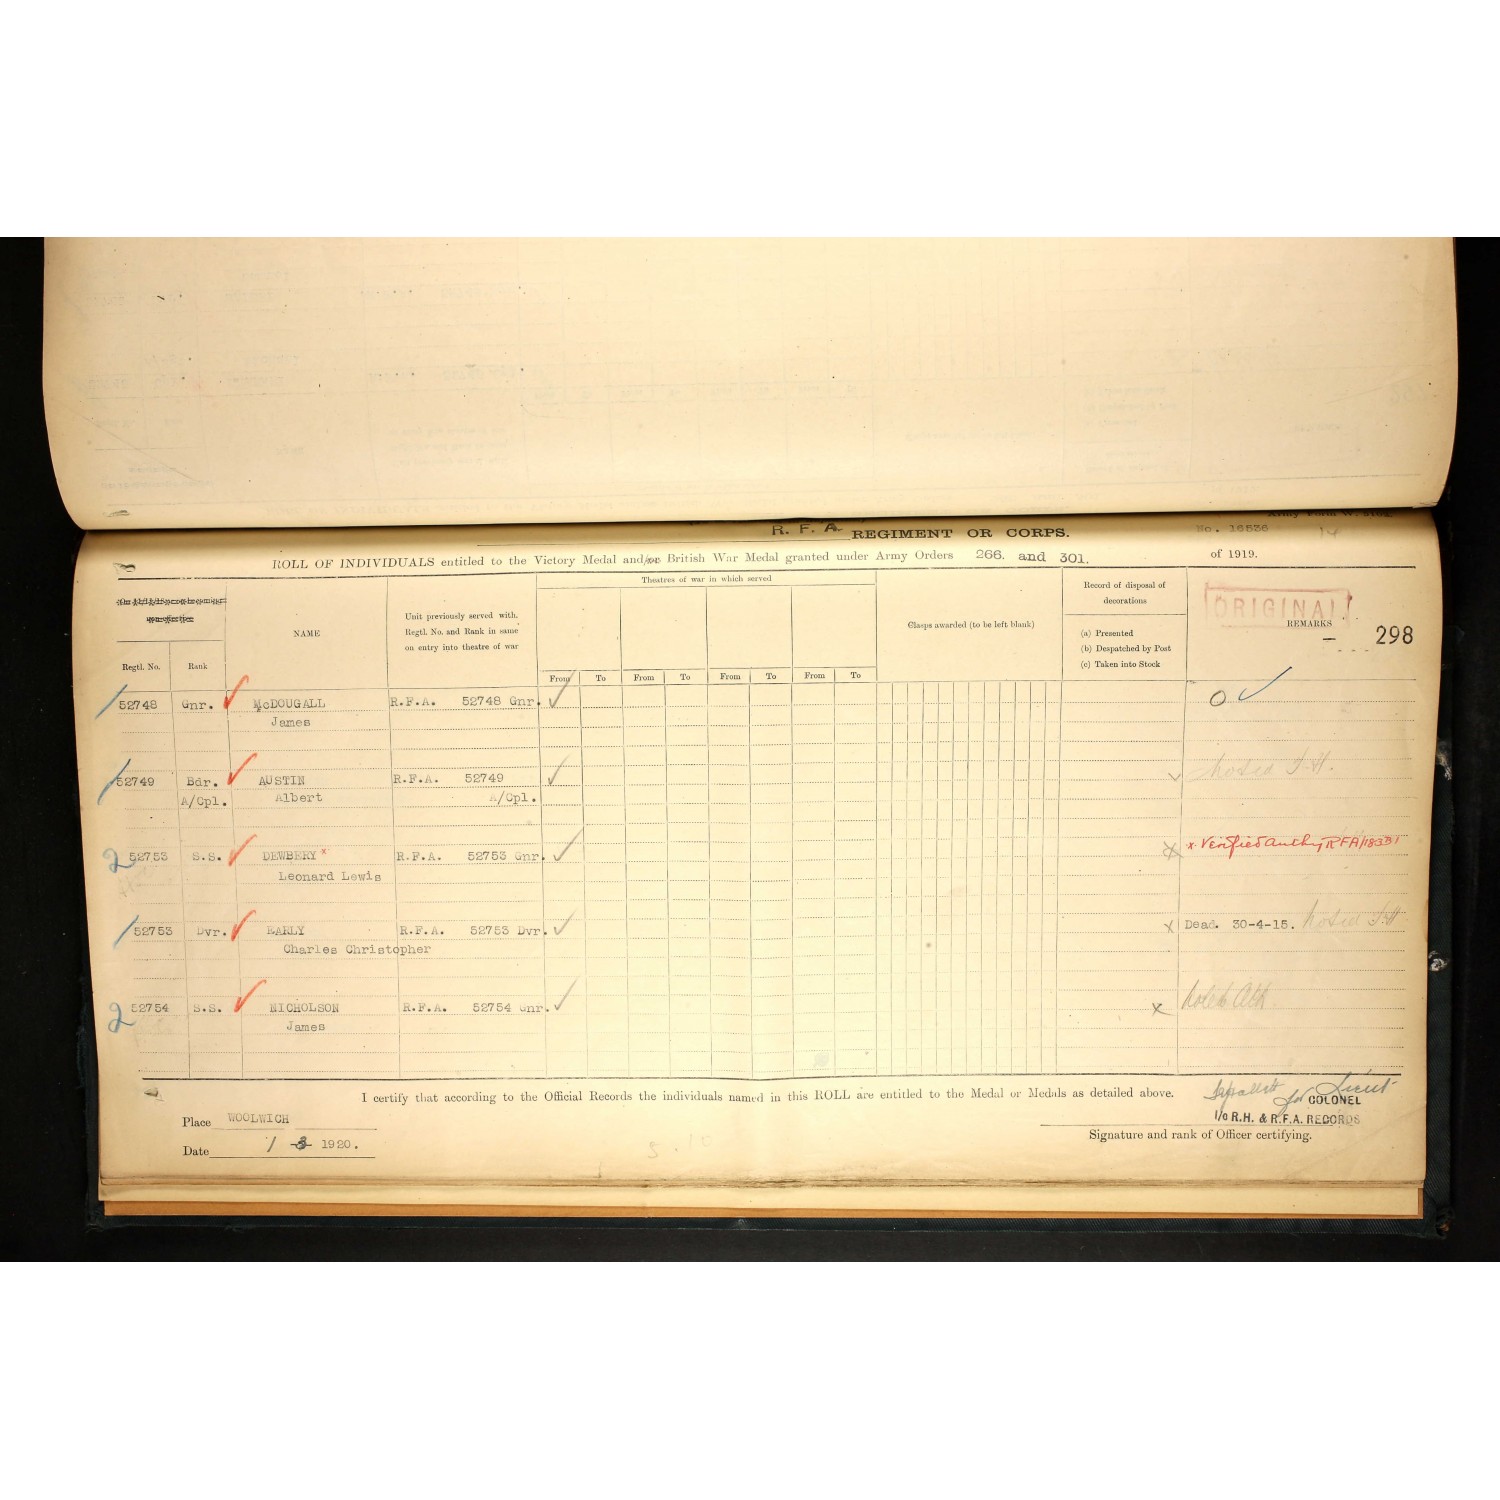 R. F. A. REGIMENT OR CORPS.
No. 16536
14
ROLL OF INDIVIDUALS entitled to the Victory Medal and/or British War Medal granted under Army Orders 266. and 301. of 1919.
Theatres of war in which served
Record of disposal of
decorations
ORIGINAL
REMARKS
298
NAME
Unit previously served with.
Regtl. No. and Rank in same
on entry into theatre of war
Clasps awarded (to be left blank)
(a) Presented
(b) Despatched by Post
(c) Taken into Stock
Regtl. No. Rank
From To From To From To From To
1 52748 Gnr. McDOUGALL R.F.A. 52748 Gnr. O
James
1 52749 Bdr. AUSTIN R.F.A. 52749
A/Cpl. Albert A/Cpl.
2 52753 S.S. DEWBERY x R.F.A. 52753 Gnr. x Verified Authy RFA/18381
Leonard Lewis
1 52753 Dvr. EARLY R.F.A. 52753 Dvr. x Dead. 30-4-15.
Charles Christopher
2 52754 S.S. NICHOLSON R.F.A. 52754 Gnr. x
James
I certify that according to the Official Records the individuals named in this ROLL are entitled to the Medal or Medals as detailed above.
Lieut
for COLONEL
Place WOOLWICH
I/c R.H. & R.F.A. RECORDS
Signature and rank of Officer certifying.
Date 1 3 1920.